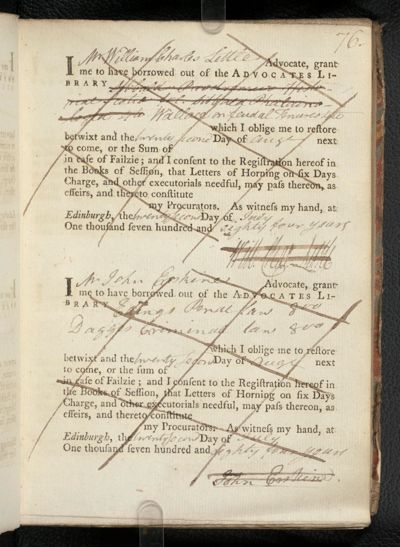 76.
I Mr William Charles Little Advocate, grant
me to have borrowed out of the ADVOCATES LI-
BRARY
Wallace on feudal Tenures 8vo
which I oblige me to restore
betwixt and the twenty second Day of Augt next
to come, or the Sum of
in case of Failzie; and I consent to the Registration hereof in
the Books of Session, that Letters of Horning on six Days
Charge, and other executorials needful, may pass thereon, as
effeirs, and thereto constitute
my Procurators. As witness my hand, at
Edinburgh, the twenty second Day of July
One thousand seven hundred and eighty four years
Will. Chas. Little
I Mr John Erskine Advocate, grant
me to have borrowed out of the ADVOCATES LI-
BRARY Penal Laws 8vo
Dagges Criminal law 8vo
which I oblige me to restore
betwixt and the twenty second Day of Augt next
to come, or the sum of
in case of Failzie; and I consent to the Registration hereof in
the Books of Session, that Letters of Horning on six Days
Charge, and other executorials needful, may pass thereon, as
effeirs, and thereto constitute
my Procurators. As witness my hand, at
Edinburgh, the twenty second Day of July
One thousand seven hundred and eighty four years
John Erskine